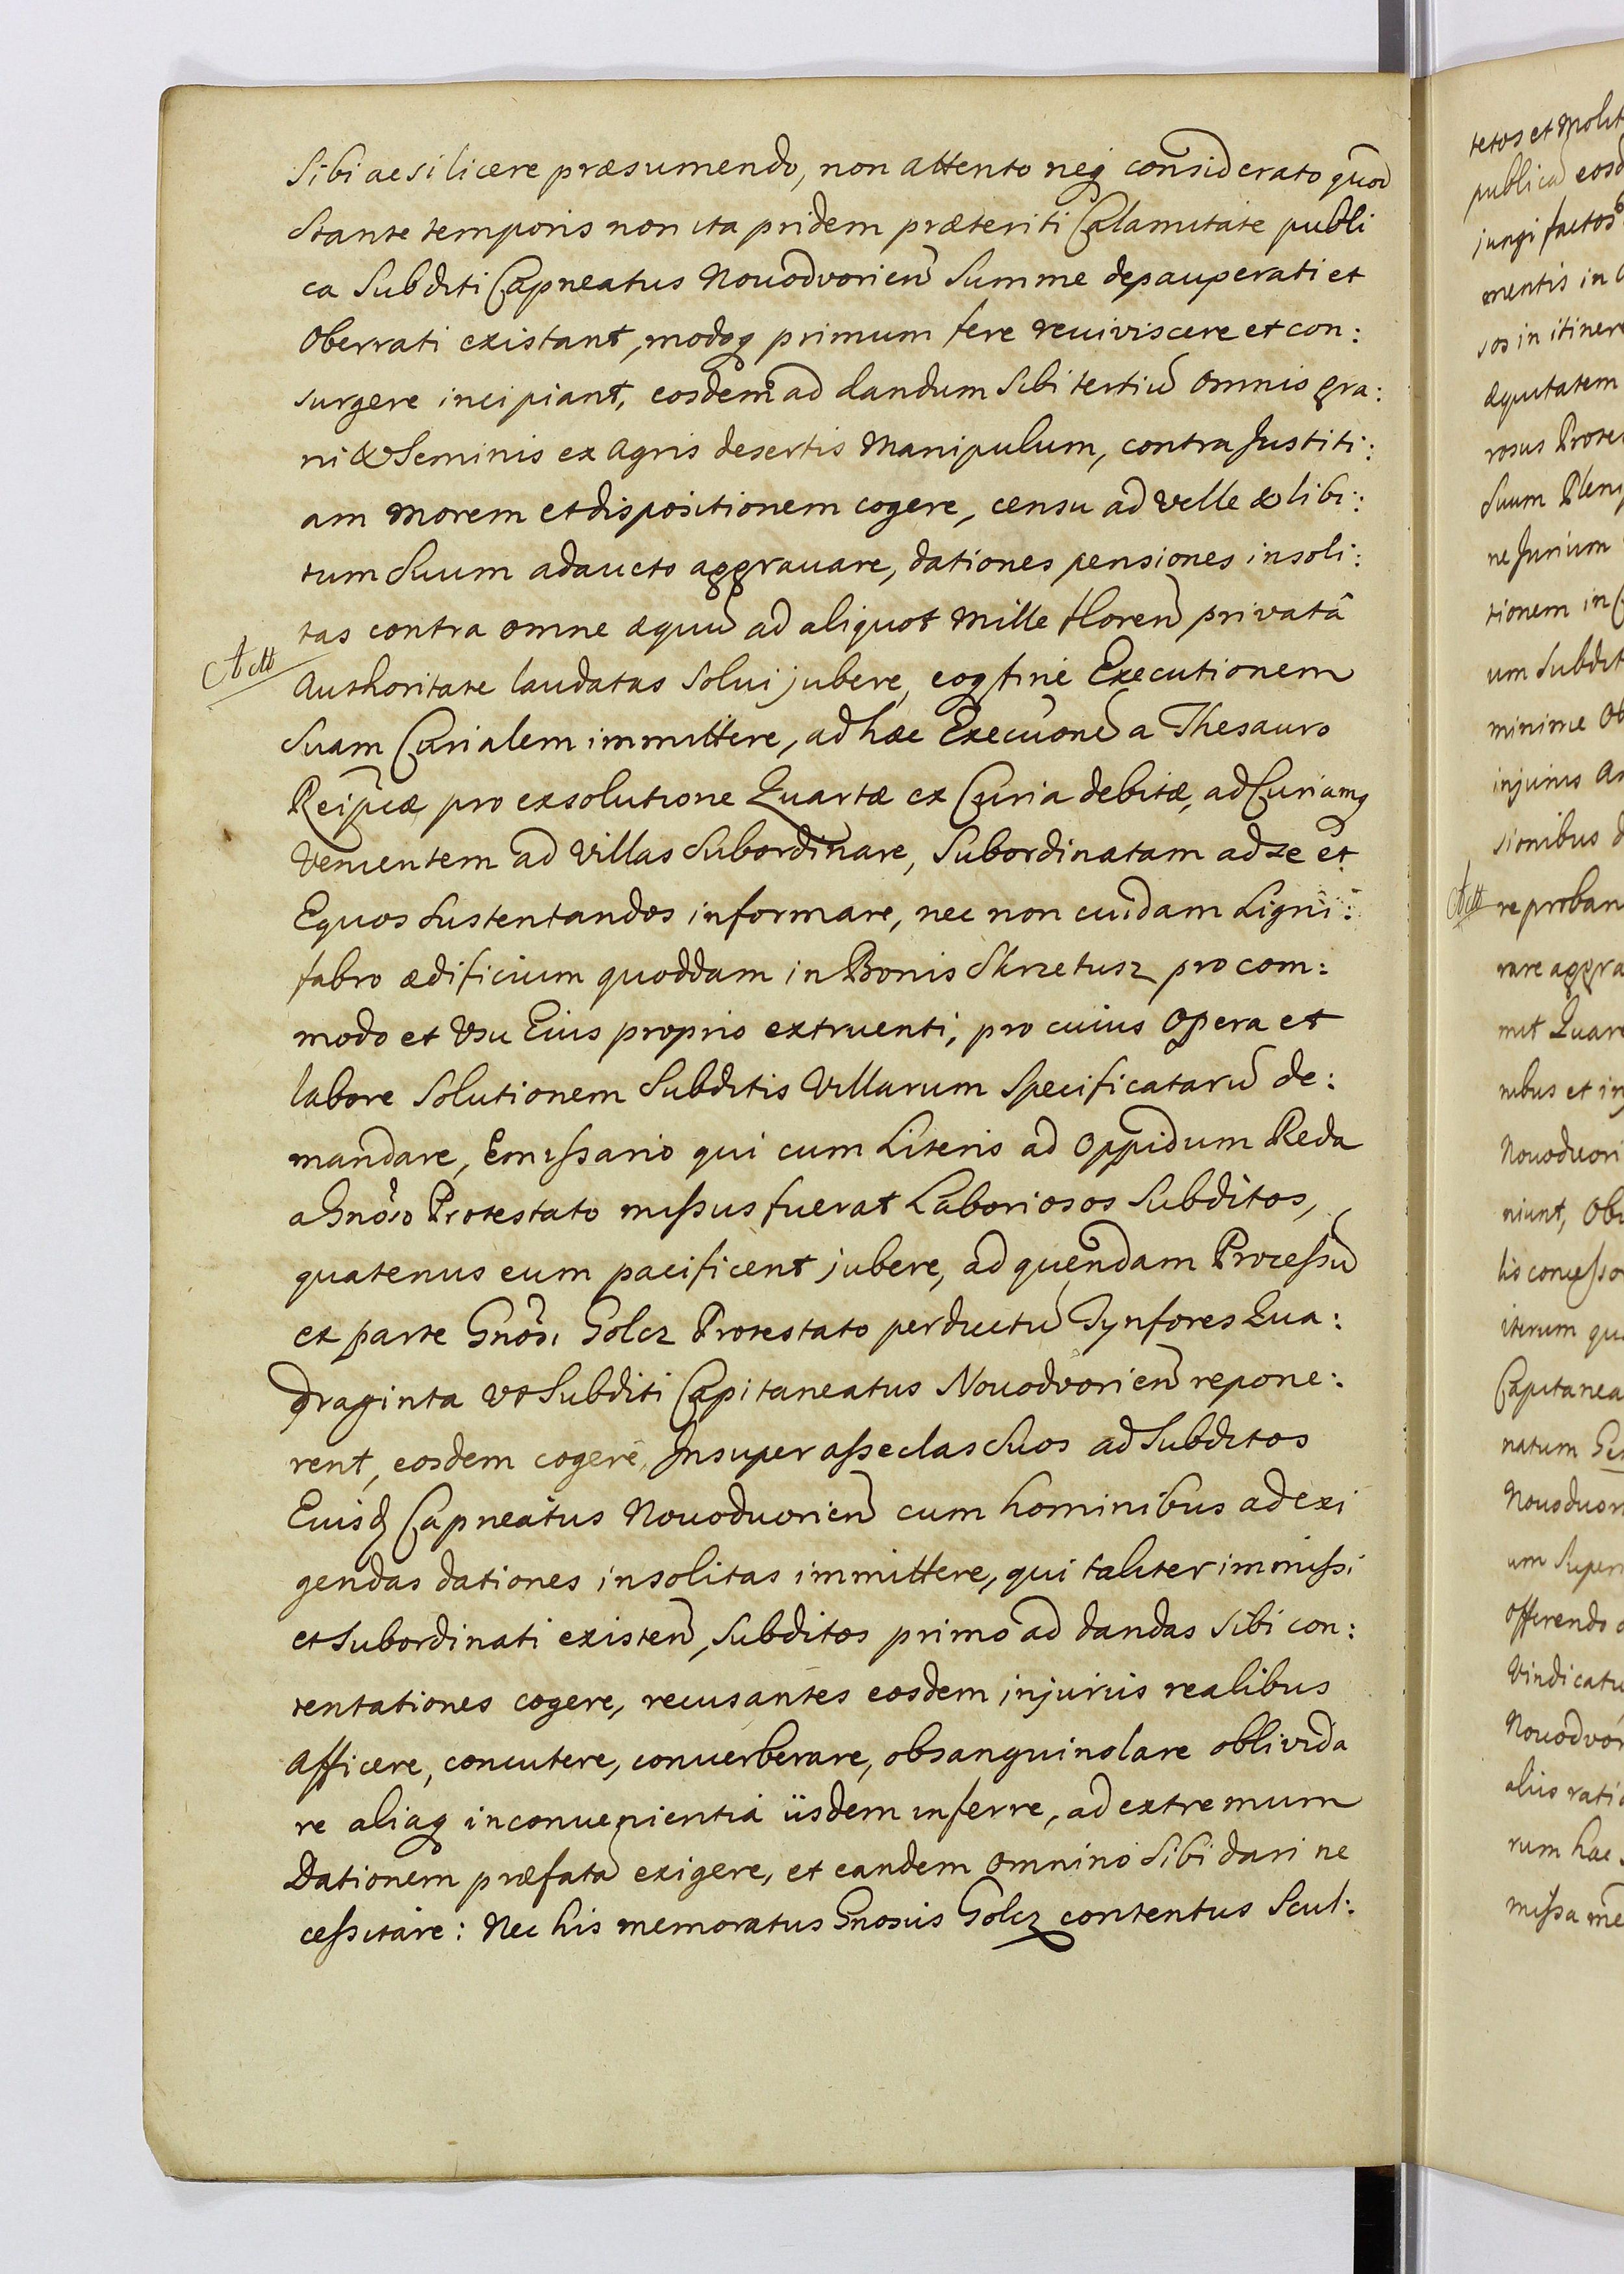 Sibi ac si licere præsumendo, non attento neq considerato quod
Stante temporis non ita pridem præteriti Calamitate publi
ca Subditi Capneatus Nouodvorien Summe depauperati et
Oberrati existant, modoq primum fere reuiviscere et con:
surgere incipiant, eosdem ad dandum Sibi tertiu omnis gra:
ni & Seminis ex Agris desertis Manipulum, contra Justiti:
am morem et dispositionem cogere, censu ad velle & libi:
tum Suum adaucto aggrauare, dationes pensiones insoli:
tas contra omne æquu ad aliquot Mille floren privatâ
Authoritate laudatas Solui jubere, eoq fine Executionem
Suam Curialem immittere, ad hæc Execuone a Thesauro
Reipcæ pro exsolutione Quartæ ex Curia debitæ, ad Curiamq
Venientem ad Villas Subordinare, Subordinatam ad se et
Equos Sustentandos informare, nec non cuidam Ligni:
fabro ædificium quoddam in Bonis Skrzetusz pro com:
modo et Vsu Eius proprio extruenti, pro cuius Opera et
labore Solutionem Subditis Villarum Specificataru de:
mandare, Emissario qui cum Literis ad Oppidum Reda
a Gnoso Protestato missus fuerat Laboriosos Subditos,
quatenus eum pacificent jubere, ad quendam Processu
ex parte Gnosi Golcz Protestato perductu Tynfores Qua:
draginta vt Subditi Capitaneatus Nouodvorien repone:
rent, eosdem cogere, Insuper asseclas Suos ad Subditos
Eiusd Capneatus Nouoduorien cum hominibus ad exi
gendas dationes insolitas immittere, qui taliter immissi
et Subordinati existen, Subditos primo ad dandas Sibi con:
tentationes cogere, recusantes eosdem injuriis realibus
Afficere, concutere, conuerberare, obsanguinolare oblivida
re aliaq inconuenientia iisdem inferre, ad extremum
Dationem præfata exigere, et eandem omnino Sibi dari ne
cessitare: Nec his memoratus Gnosus Golcz contentus Scul:
tetos et Molit
publica eosd
jungi factos
mentis in
sos in itinere
æquitatem
rosus Protes
Suum Plen
ne Jurium
tionem in
um Subdit
minime Ob
injuriis
sionibus
re proban
rare aggra
mit Quare
nibus et in
Nouoduori
niunt, Ob
lis concesso
iterum qu
Capitanea
natum Ge
Nouoduor
um Super
Offerendo
Vindicatu
Nouodvor
aliis ratio
rum hac
missa me